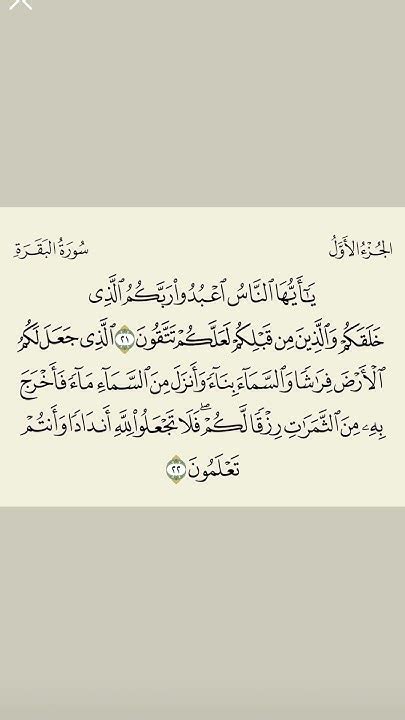 الجُزْءُ الأَوَّلُ
سُورَةُ البَقَرَةِ
يَٰٓأَيُّهَا ٱلنَّاسُ ٱعْبُدُوا۟ رَبَّكُمُ ٱلَّذِى
خَلَقَكُمْ وَٱلَّذِينَ مِن قَبْلِكُمْ لَعَلَّكُمْ تَتَّقُونَ ٢١ ٱلَّذِى جَعَلَ لَكُمُ
ٱلْأَرْضَ فِرَٰشًا وَٱلسَّمَآءَ بِنَآءً وَأَنزَلَ مِنَ ٱلسَّمَآءِ مَآءً فَأَخْرَجَ
بِهِۦ مِنَ ٱلثَّمَرَٰتِ رِزْقًا لَّكُمْ ۖ فَلَا تَجْعَلُوا۟ لِلَّهِ أَندَادًا وَأَنتُمْ
تَعْلَمُونَ ٢٢